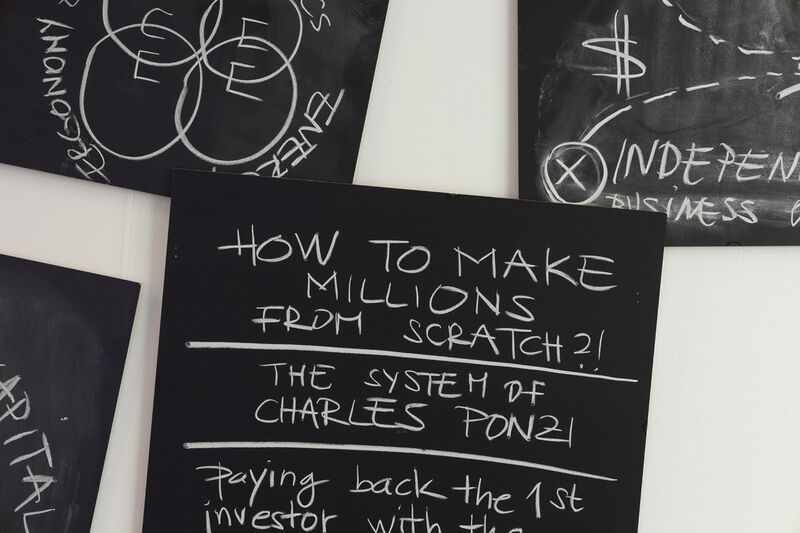 $
X
INDEPEN
BUSINESS
HOW TO MAKE
MILLIONS
FROM SCRATCH?!
THE SYSTEM OF
CHARLES PONZI
paying back the 1st
investor with the
APITAL